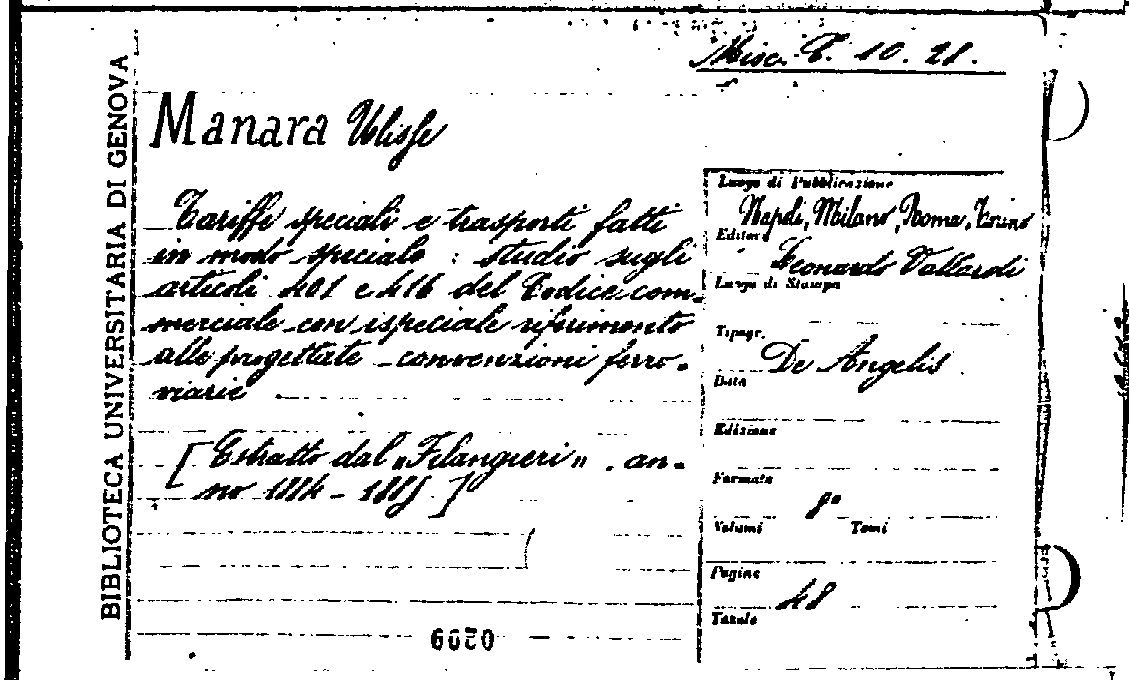 Misc. C. 10. 21.
BIBLIOTECA UNIVERSITARIA DI GENOVA
Manara Ulisse
Tariffe speciali e trasporti fatti
in modo speciale : studio sugli
articoli 401 e 416 del Codice com-
merciale con ispeciale riferimento
alle progettate convenzioni ferro-
viarie
[Estratto dal "Filangieri" . an-
no 1884-1885.]
Luogo di Pubblicazione
Napoli, Milano, Roma, Torino
Editore
Leonardo Vallardi
Luogo di Stampa
Tipogr.
De Angelis
Data
Edizione
Formato
8º
Volumi Tomi
Pagine
48
Tavole
0209